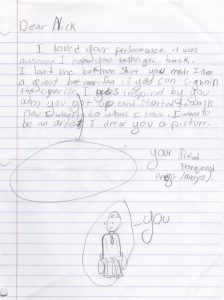 Dear Nick
I loved your preformance it was
awsome I hope you come back.
I love the batman shirt you made I am
a giant batman fan if you can sign in
the I was inspired by you
when you got up and started to talk
now I want to do what I love. I want to
be an artist I drew you a picture.
your friend
Pronounced
you